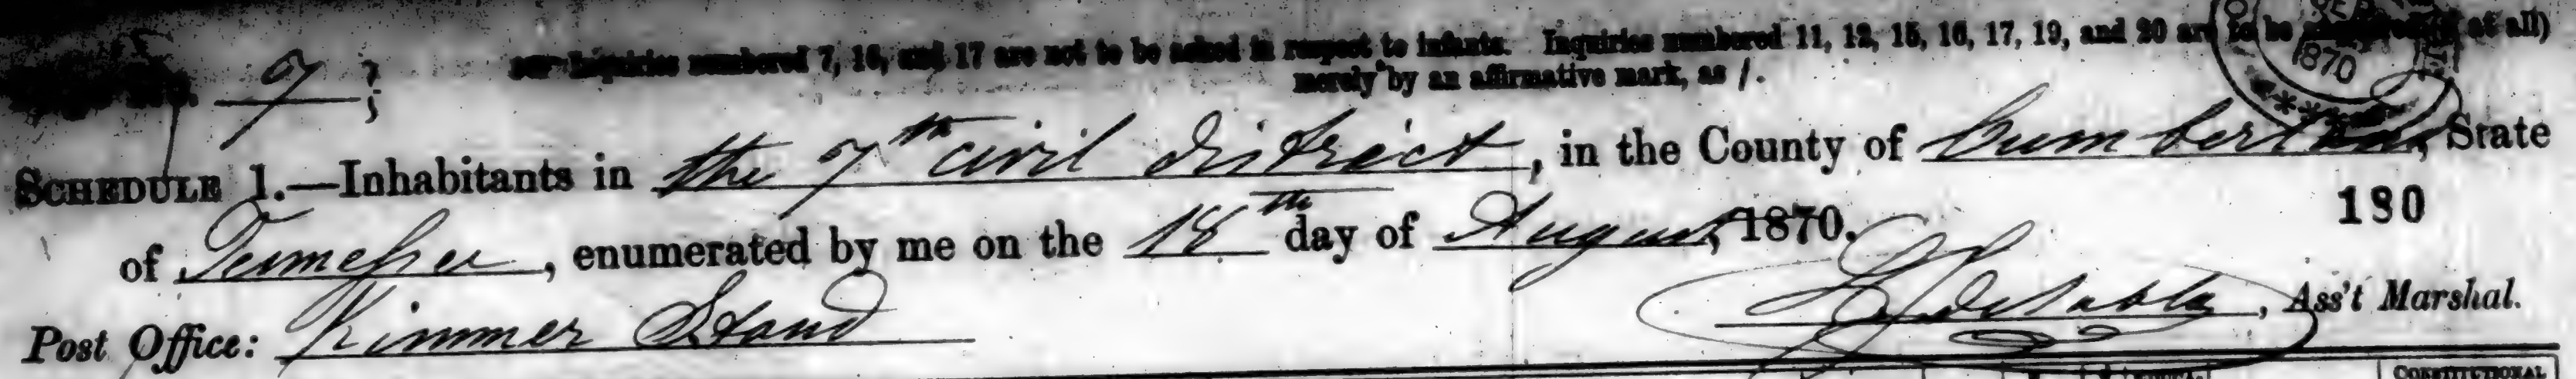 7 ; Inquiries numbered 7, 16, and 17 are not to be asked in respect to infants. Inquiries numbered 11, 12, 15, 16, 17, 19, and 20 are to be at all)
merely by an affirmative mark, as /.
1870
SCHEDULE 1.—Inhabitants in the 7th civil district, in the County of Cumberland, State
of Tennessee, enumerated by me on the 18th day of August, 1870.
180
Post Office: Kimmer Stand
, Ass't Marshal.
CONSTITUTIONAL